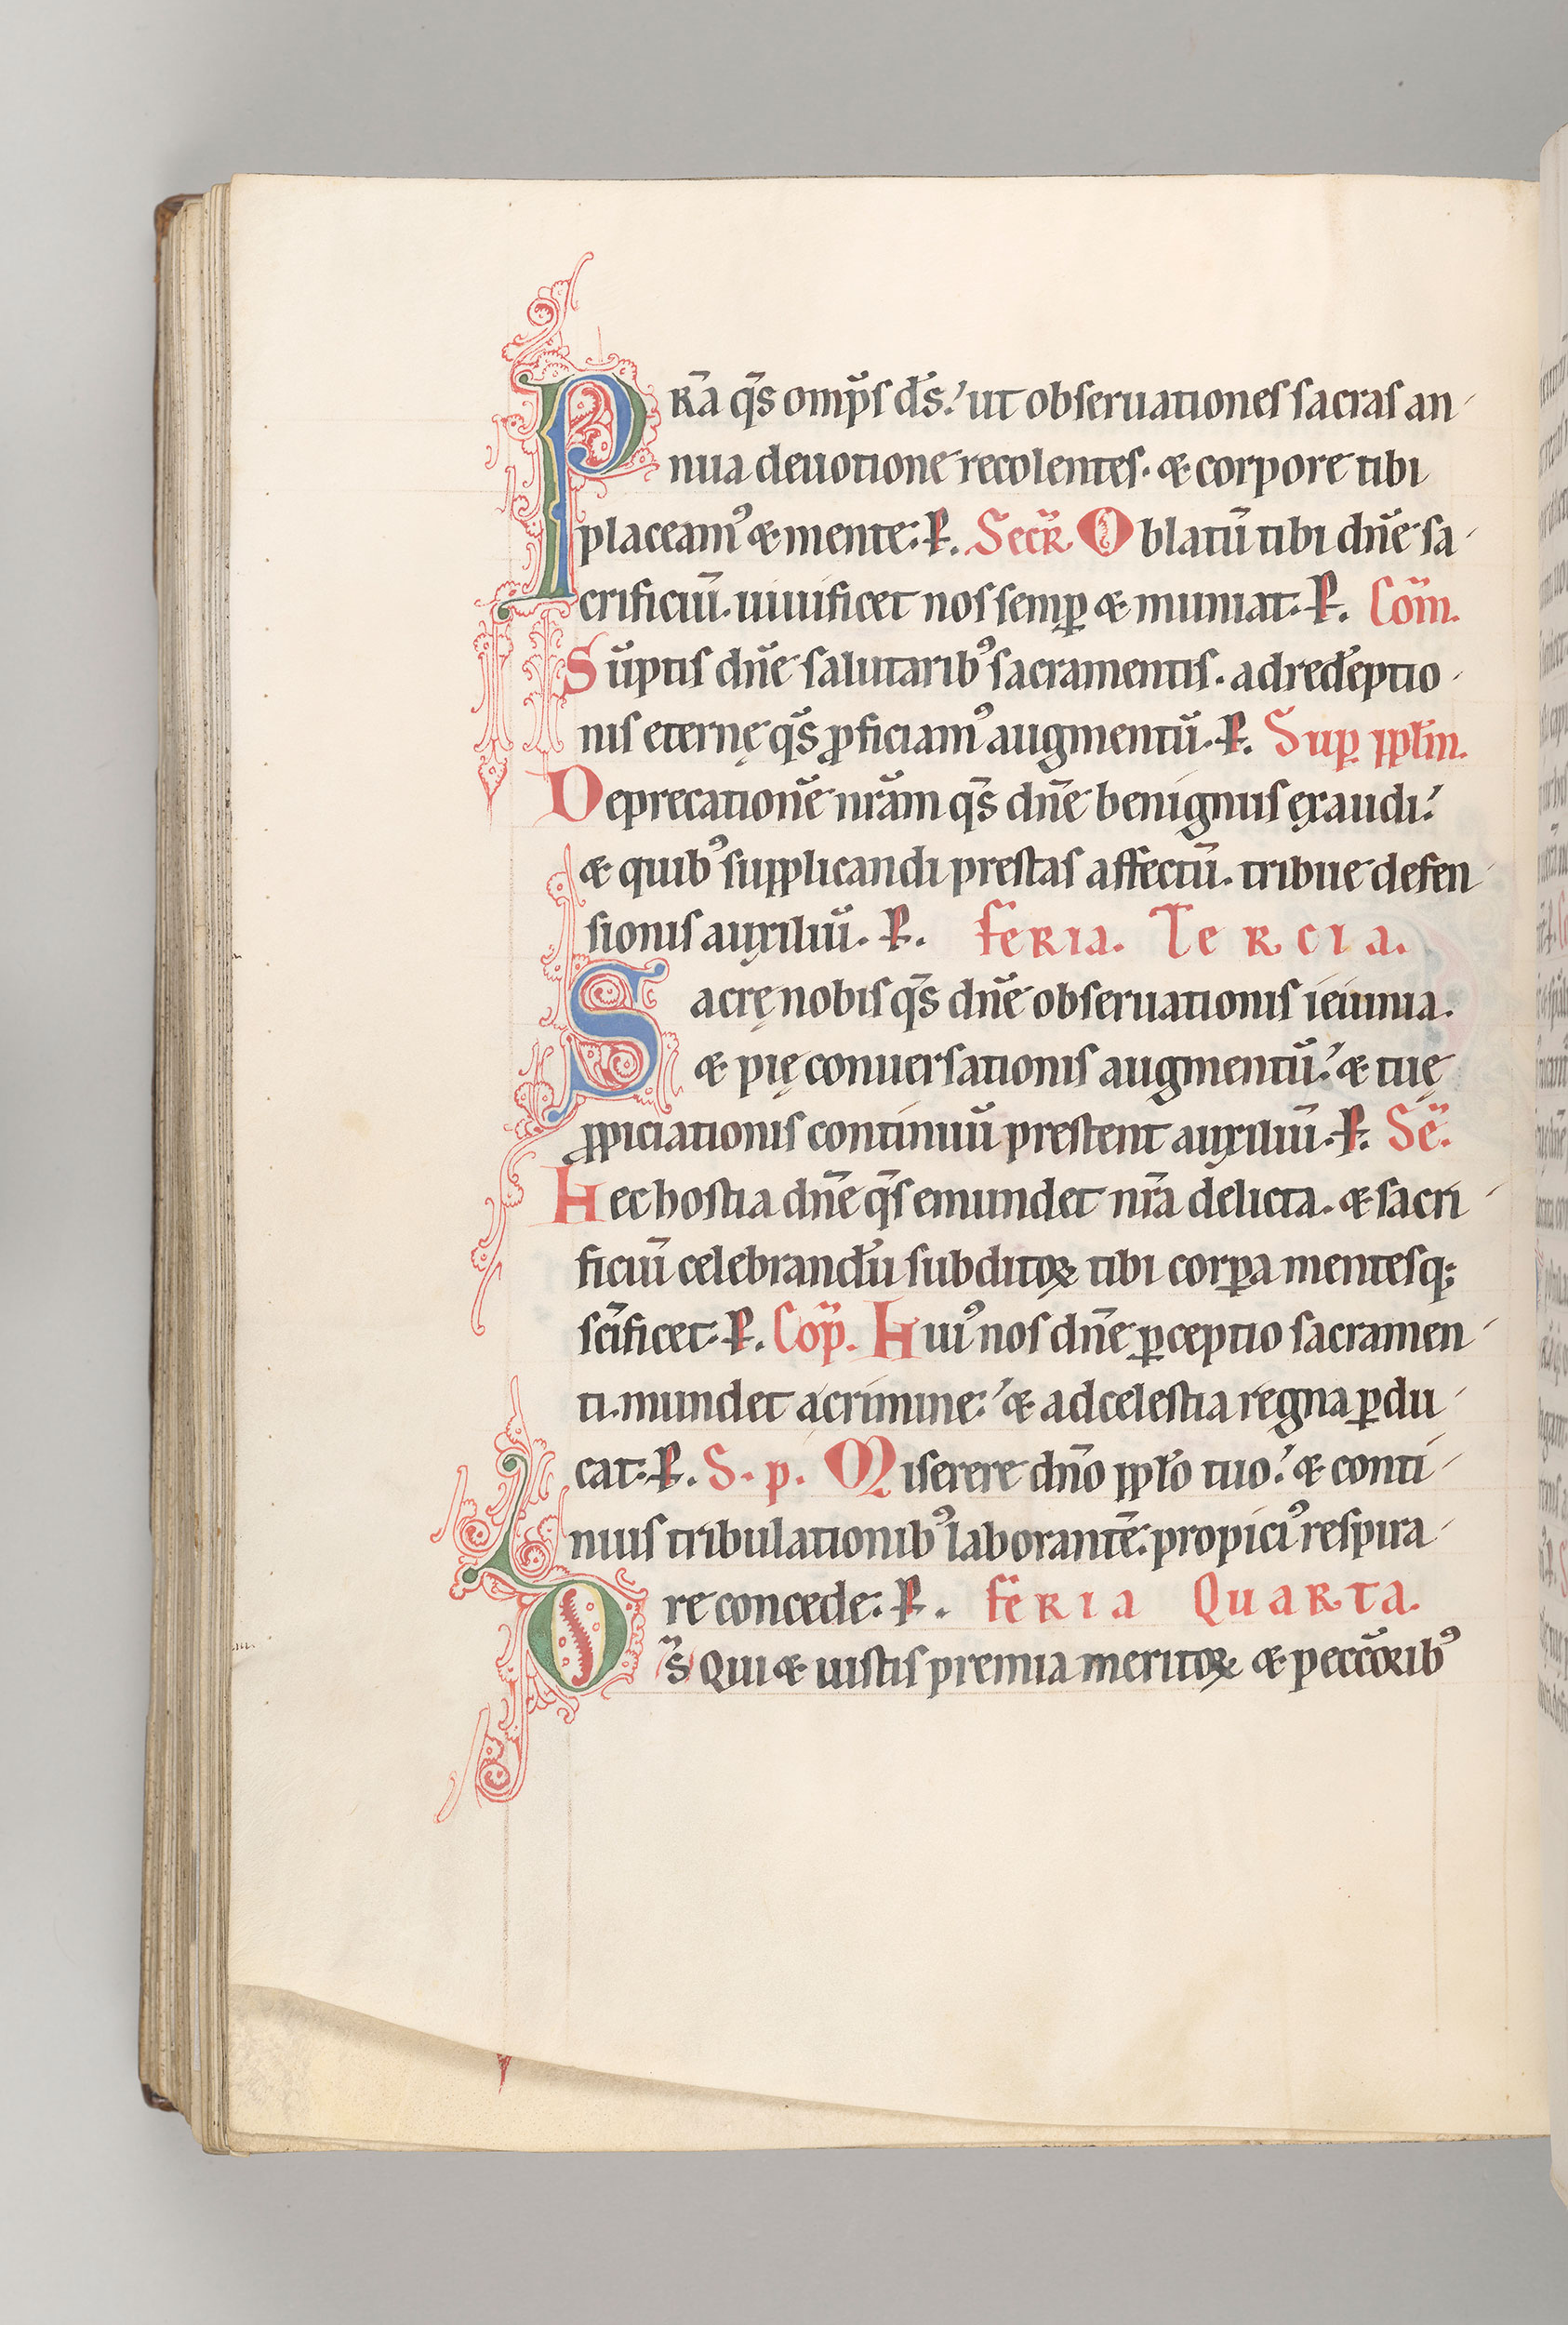 PRA̅ q̅s omp̅s d̅s.' ut obseruationes sacras an-
nua deuotione recolentes. & corpore tibi
placeam᾽ & mente: P̵. Secr̅ Oblatu̅ tibi dn̅e sa-
crificiu̅. uiuificet nos semꝑ & muniat. P̵. Com̅.
Su̅ptis dn̅e salutarib᾽ sacramentis. ad rede̅ptio-
nis eternę q̅s ꝓficiam᾽ augmentu̅. P̵. Suꝑ ppl̅m.
Deprecatione̅ nr̅am q̅s dn̅e benignus exaudi.'
& quib᾽ supplicandi prestas affectu̅. tribue defen-
sionis auxiliu̅. P̵. feria. Tercia.
Sacrę nobis q̅s dn̅e obseruationis ieiunia.
& pię conuersationis augmentu̅.' & tuę
ꝓpiciationis continuu̅ prestent auxiliu̅. P̵. Se̅.
Hec hostia dn̅e q̅s emundet nr̅a delicta. & sacri-
ficiu̅ celebrandu̅ subditoꝝ tibi corꝑa mentesq;
sc̅ificet. P̵. Co̅p. Hui᾽ nos dn̅e ꝑceptio sacramen-
ti. mundet a crimine:' & ad celestia regna ꝑdu-
cat. P̵. S. p. Miserere dn̅o pplo̅ tuo.' & conti-
nuis tribulationib᾽ laborante̅. propici᾽ respira-
re concede: P̵. feria Quarta.
D̅s Qui & iustis premia meritoꝝ & pecco̅rib᾽